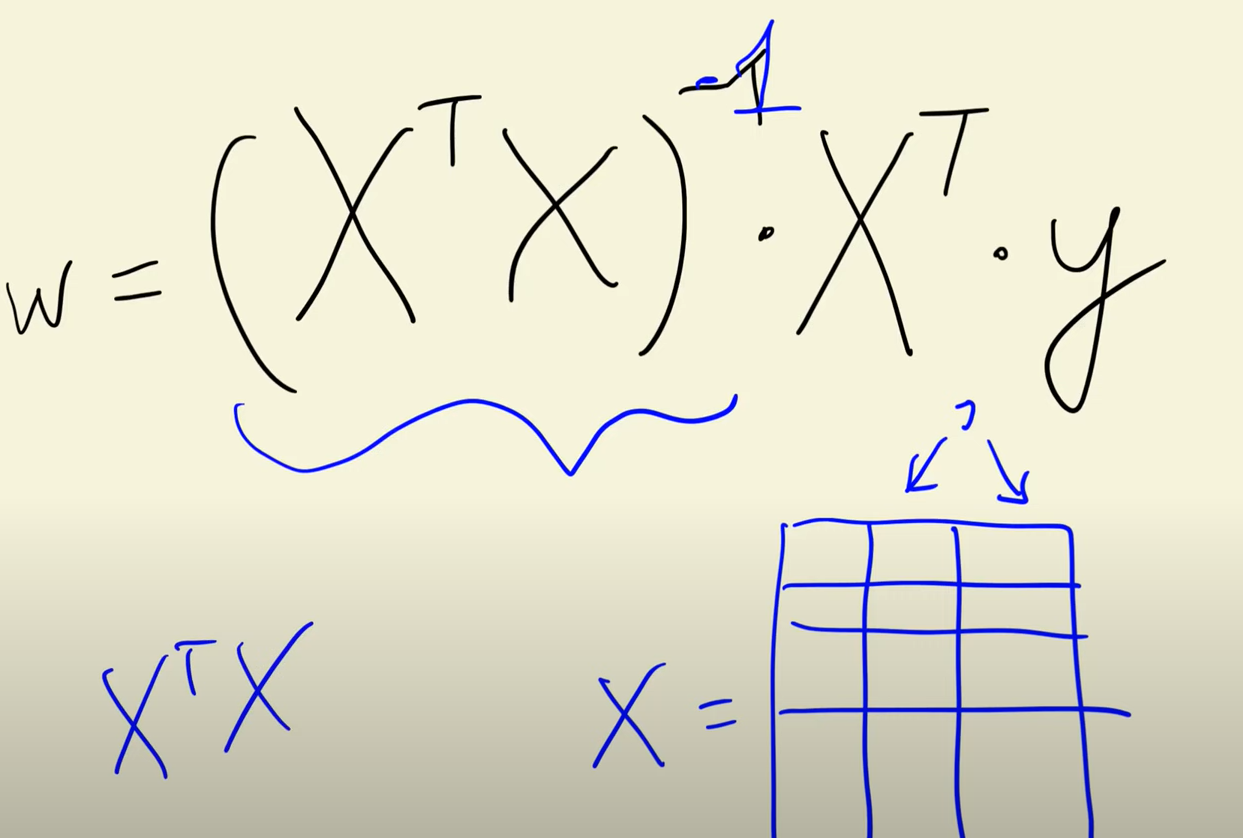 w = (XᵀX)⁻¹ · Xᵀ · y
XᵀX
X =